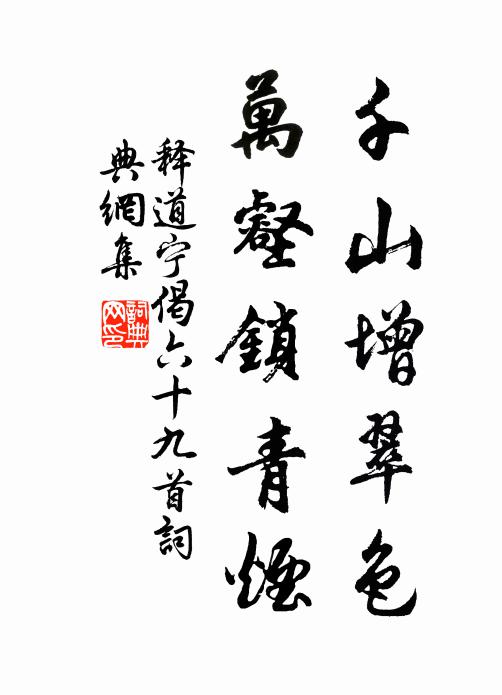 千山增翠色
萬壑鎖青煙
释道宁偈六十九首詞
典網集
詞典
网印